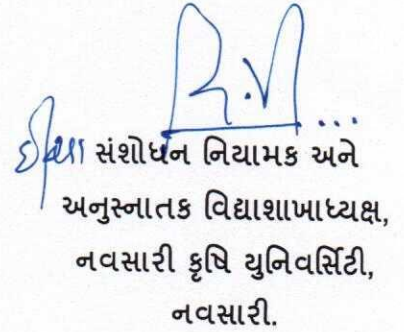 સંશોધન નિયામક અને
અનુસ્નાતક વિદ્યાશાખાધ્યક્ષ,
નવસારી કૃષિ યુનિવર્સિટી,
નવસારી.